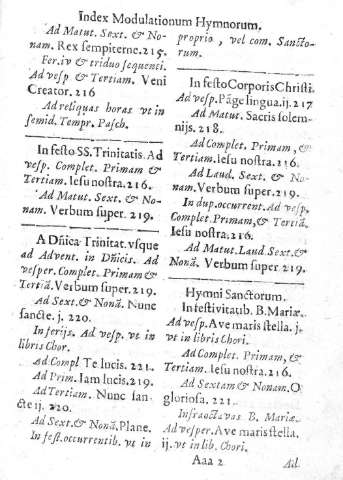 Index Modulationum Hymnorum.
Ad Matut. Sext. & No-
nam. Rex sempiterne. 215.
Fer. iv & triduo sequenti.
Ad vesp & Tertiam. Veni
Creator. 216
Ad reliquas horas vt in
semid. Tempr. Pasch.
In festo SS. Trinitatis. Ad
vesp. Complet. Primam &
Tertiam. Iesu nostra. 216.
Ad Matut. Sext. & No-
nam. Verbum super. 219.
A Dñica Trinitat. vsque
ad Advent. in Dñicis. Ad
vesper. Complet. Primam &
Tertiã. Verbum super. 219.
Ad Sext. & Nonã. Nunc
sancte. j. 220.
In ferijs. Ad vesp. vt in
libris Chor.
Ad Compl Te lucis. 221.
Ad Prim. Iam lucis. 219.
Ad Tertiam. Nunc san-
cte ij. 220.
Ad Sext. & Nonã. Plane.
In fest. occurrentib. vt in
proprio, vel com. Sancto-
rum.
In festo Corporis Christi.
Ad vesp. Pãge lingua. ij. 217
Ad Matut. Sacris solem-
nijs. 218.
Ad Complet. Primam, &
Tertiam. Iesu nostra. 216.
Ad Laud. Sext. & No-
nam. Verbum super. 219.
In dup. occurrent. Ad vesp.
Complet. Primam, & Tertiã.
Iesu nostra. 216.
Ad Matut. Laud. Sext. &
Nonã. Verbum super 219.
Hymni Sanctorum.
In festivitaub. B. Mariæ.
Ad vesp. Ave maris stella. j.
vt in libris Chori.
Ad Complet. Primam, &
Tertiam. Iesu nostra. 216.
Ad Sextam & Nonam. O
gloriosa. 221.
Infraoctavas B. Mariæ.
Ad vesper. Ave maris stella.
ij. vt in lib. Chori.
Aaa 2 Ad